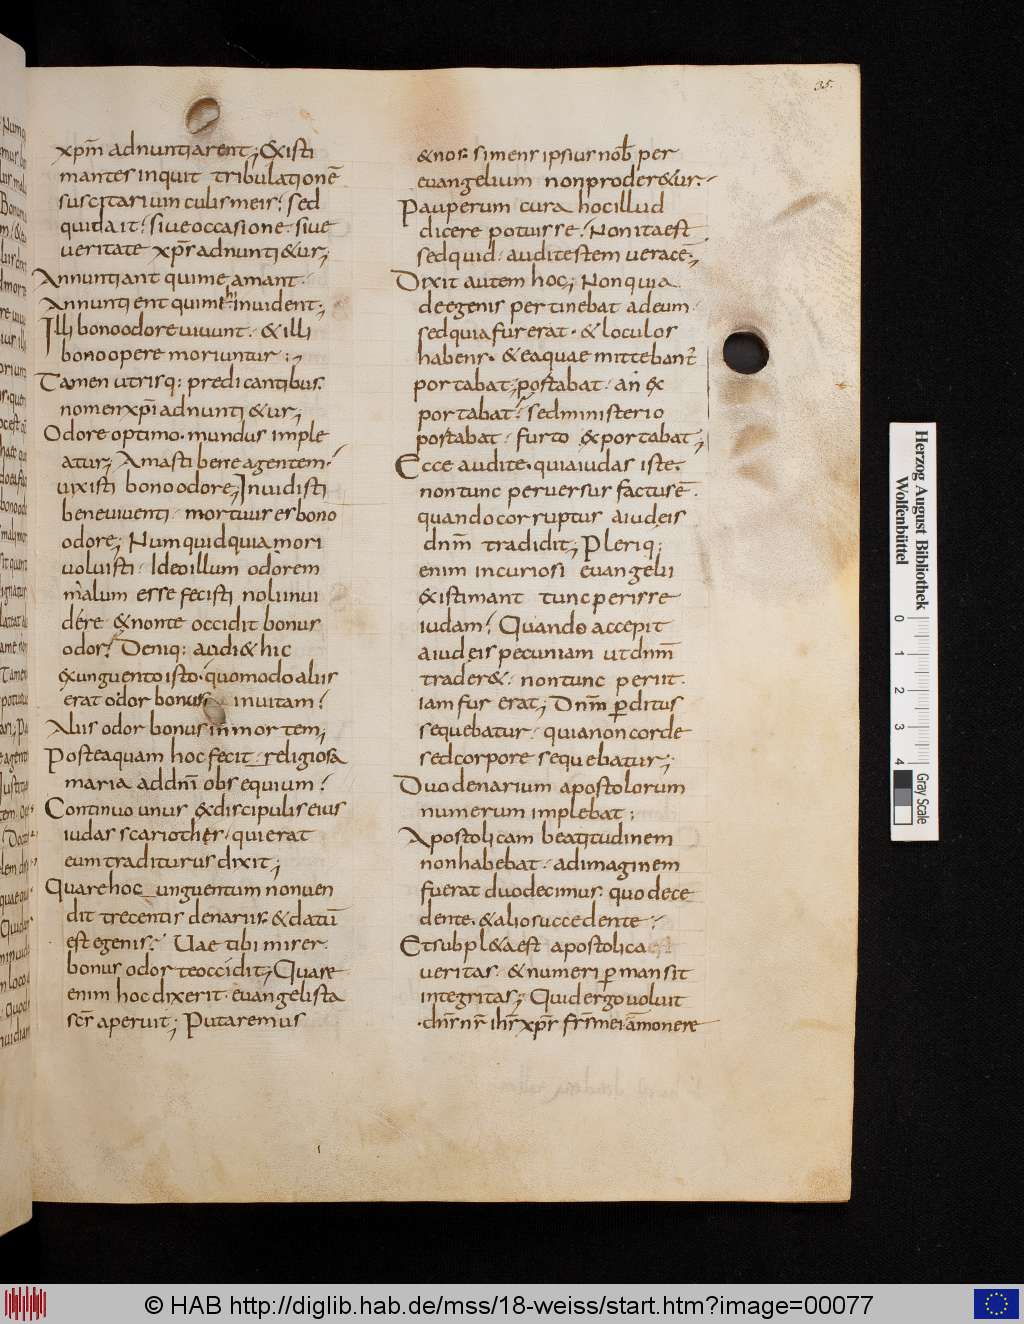 35.
xpm̄ adnuntiarent; Existi
mantes inquit tribulationē
suscitari uinculis meis; sed
quid ait; siue occasione siue
ueritate xps̄ adnuntietur;
Annuntiant qui me amant
Annuntient qui mihi inuident;
Illi bono odore uiuunt. & illi
bono opere moriuntur;
Tamen utrisq; predicantibus
nomen xpī adnuntietur;
Odore optimo. mundus imple
atur; Amasti bene agentem
uixisti bono odore; Inuidisti
bene uiuenti. mortuus es bono
odore; Numquid quia mori
uoluisti. Ideo illum odorem
malum esse fecisti noli inui
dére. & non te occidit bonus
odor; Deniq; audi & hic
ex unguento isto. quomodo aliis
erat odor bonus inuitam?
Aliis odor bonus in mortem;
Posteaquam hoc fecit religiosa
maria ad dnī obsequium?
Continuo unus ex discipulis eius
iudas scariothes. qui erat
eum traditurus dixit;
Quare hoc unguentum non uen
dit trecentis denariis. & datū
est egenis? Uae tibi miser.
bonus odor te occidit; Quare
enim hoc dixerit euangelista
scs̄ aperuit; Putaremus
& nos. si mens ipsius nob̄ per
euangelium non proderetur.
Pauperum cura hoc illud
dicere potuisse. Non ita est
sed quid. audi testem ueracē.
Dixit autem hoc; Non quia
de egenis pertinebat ad eum
sed quia fur erat. & loculos
habens. & ea quae mittebant̄
portabat; portabat. an ex
portabat? sed ministerio
portabat. furto exportabat;
Ecce audite. quia iudas iste.
non tunc peruersus factus ē.
quando corruptus a iudeis
dnm̄ tradidit; Pleriq;
enim incuriosi euangelii
existimant tunc perisse
iudam? Quando accepit
a iudeis pecuniam ut dnm̄
traderet. non tunc periit.
iam fur erat; Dnm̄ ꝑditus
sequebatur. quia non corde
sed corpore sequebatur;
Duodenarium apostolorum
numerum implebat;
Apostolicam beatitudinem
non habebat. ad imaginem
fuerat duodecimus. quo dece
dente. & alio succedente
Et subpleta est apostolica
ueritas. & numeri ꝑmansit
integritas; Quid ergo uoluit
dns̄ nr̄ ihs̄ xps̄ frs̄ mei āmonere
Herzog August Bibliothek
Wolfenbüttel
0 1 2 3 4
Gray Scale
© HAB http://diglib.hab.de/mss/18-weiss/start.htm?image=00077